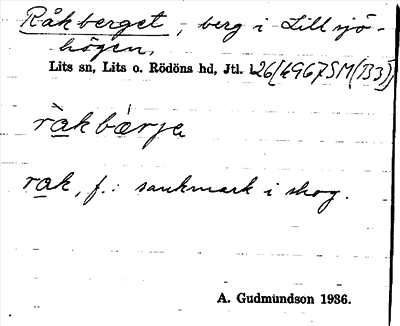 Råkberget, berg i Lillsjö-
högen,
Lits sn, Lits o. Rödöns hd, Jtl.
ràkbærje
rak, f.: sankmark i skog.
A. Gudmundson 1936.